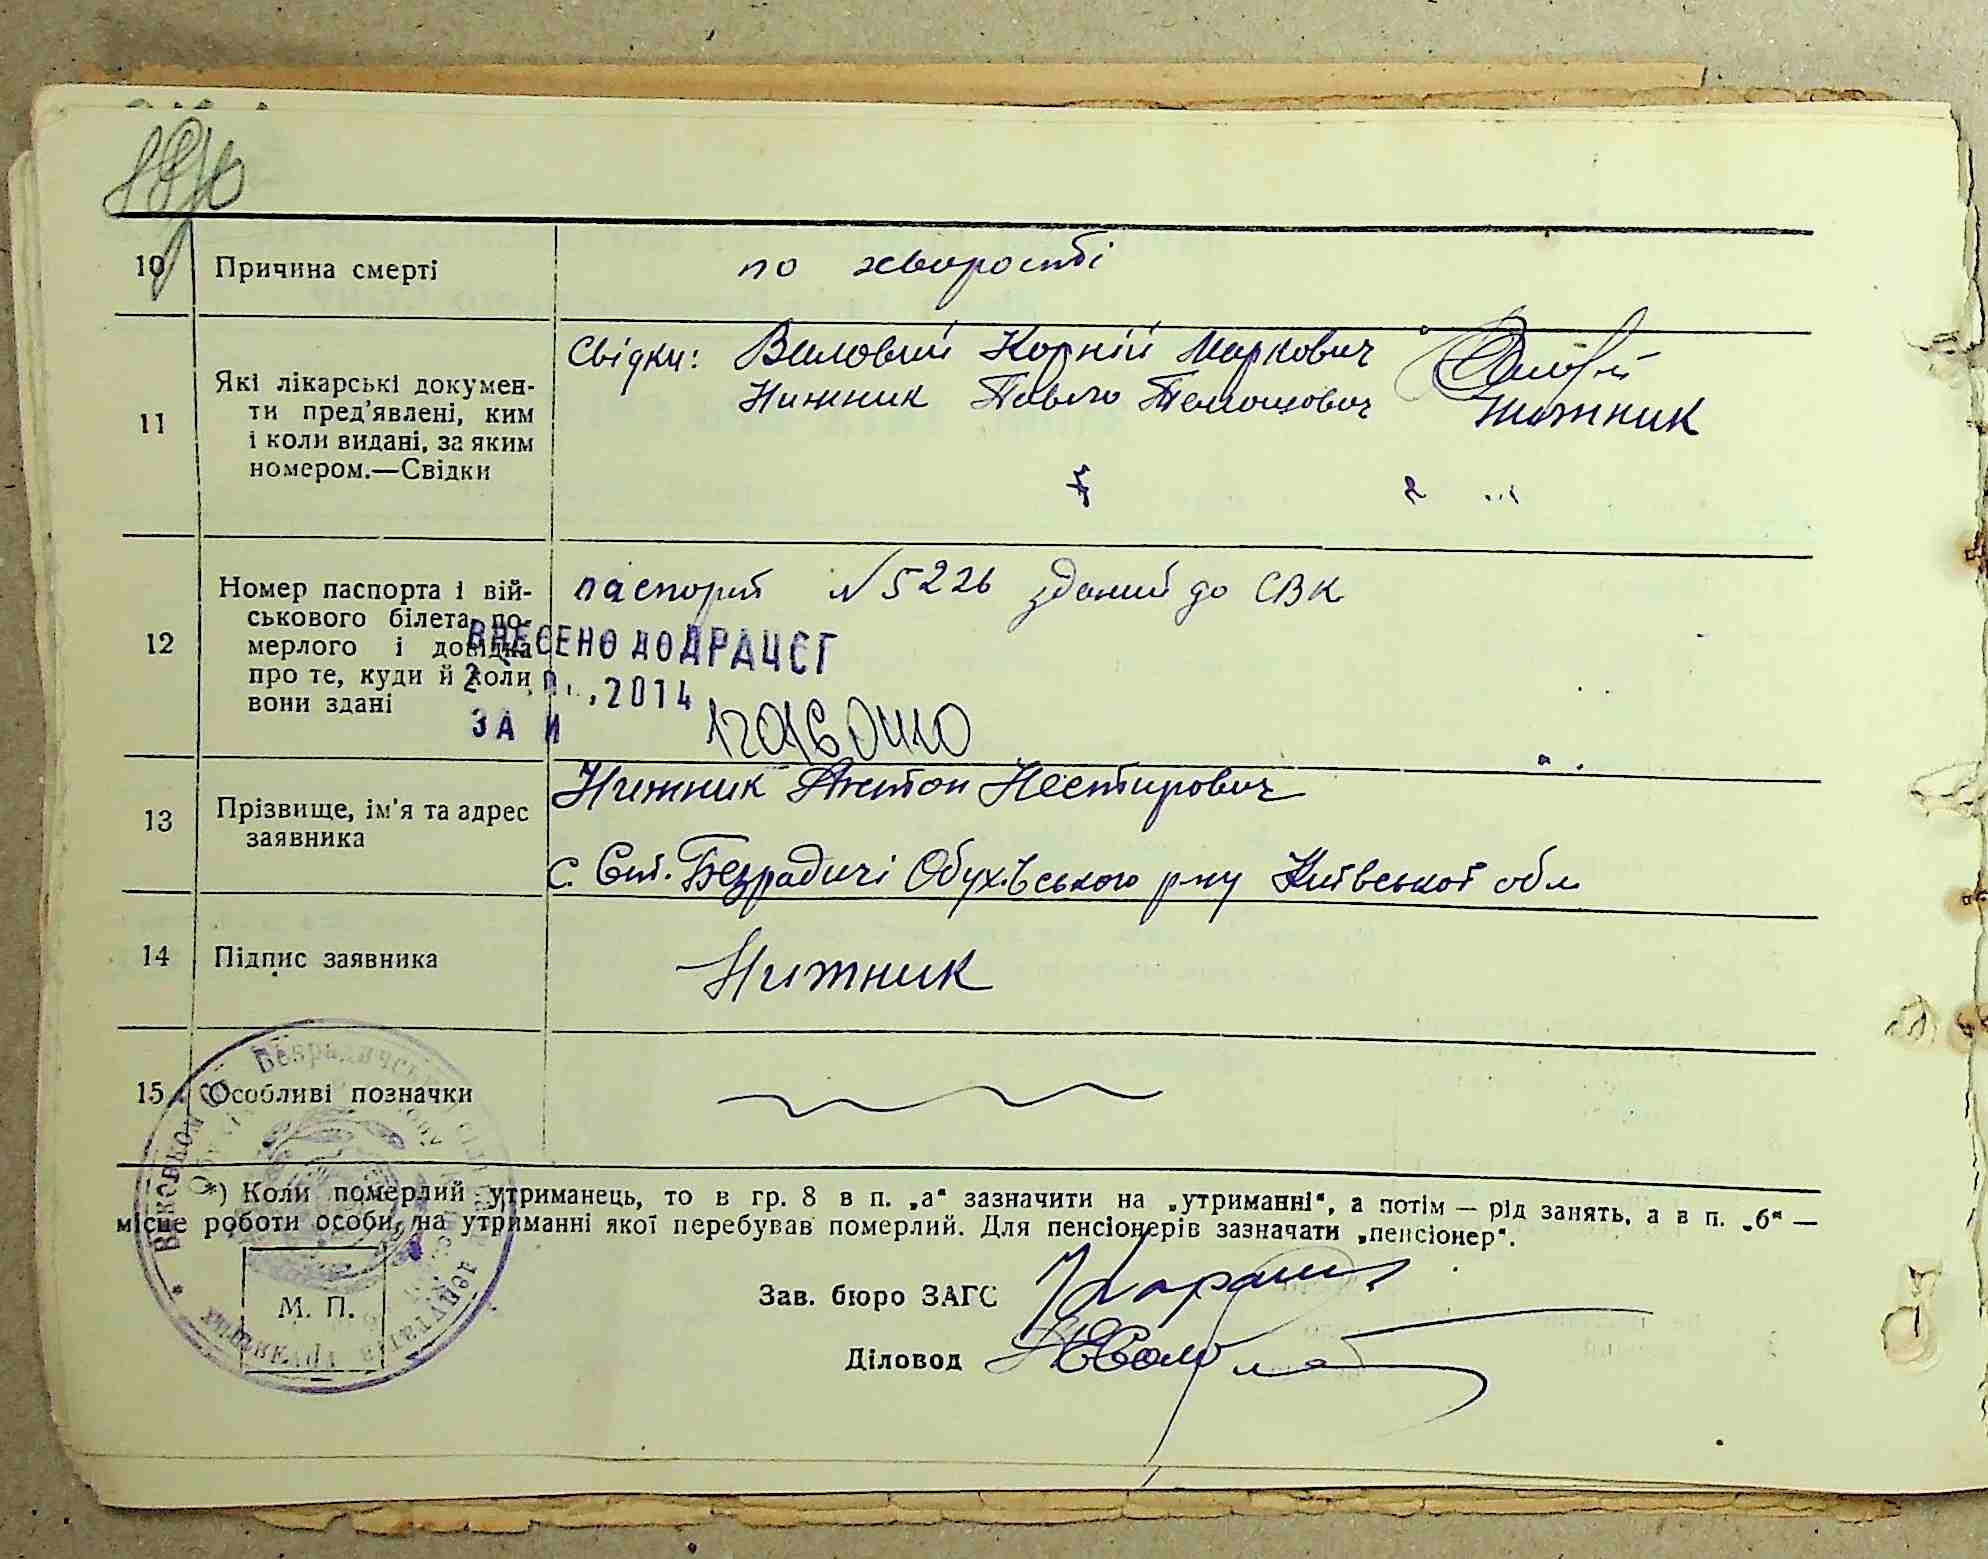 10 Причина смерті
по хворості
11 Які лікарські докумен-
ти пред'явлені, ким
і коли видані, за яким
номером.—Свідки
Свідки: Валовий Корній Маркович
Нижник Павло Тимошович Нижник
12 Номер паспорта і вій-
ськового білета по-
мерлого і довідка
про те, куди й коли
вони здані
паспорт №5226 зданий до СВК
ВНЕСЕНО ДО ДРАЦСГ
2014
ЗА №
13 Прізвище, ім'я та адрес
заявника
Нижник Антон Нестирович
с. Ст. Безрадичі Обухівського р-ну Київської обл
14 Підпис заявника
Нижник
15 Особливі позначки
*) Коли померлий утриманець, то в гр. 8 в п. „а“ зазначити на „утриманні“, а потім — рід занять, а в п. „б“ —
місце роботи особи, на утриманні якої перебував померлий. Для пенсіонерів зазначати „пенсіонер“.
Зав. бюро ЗАГС
Діловод
М. П.